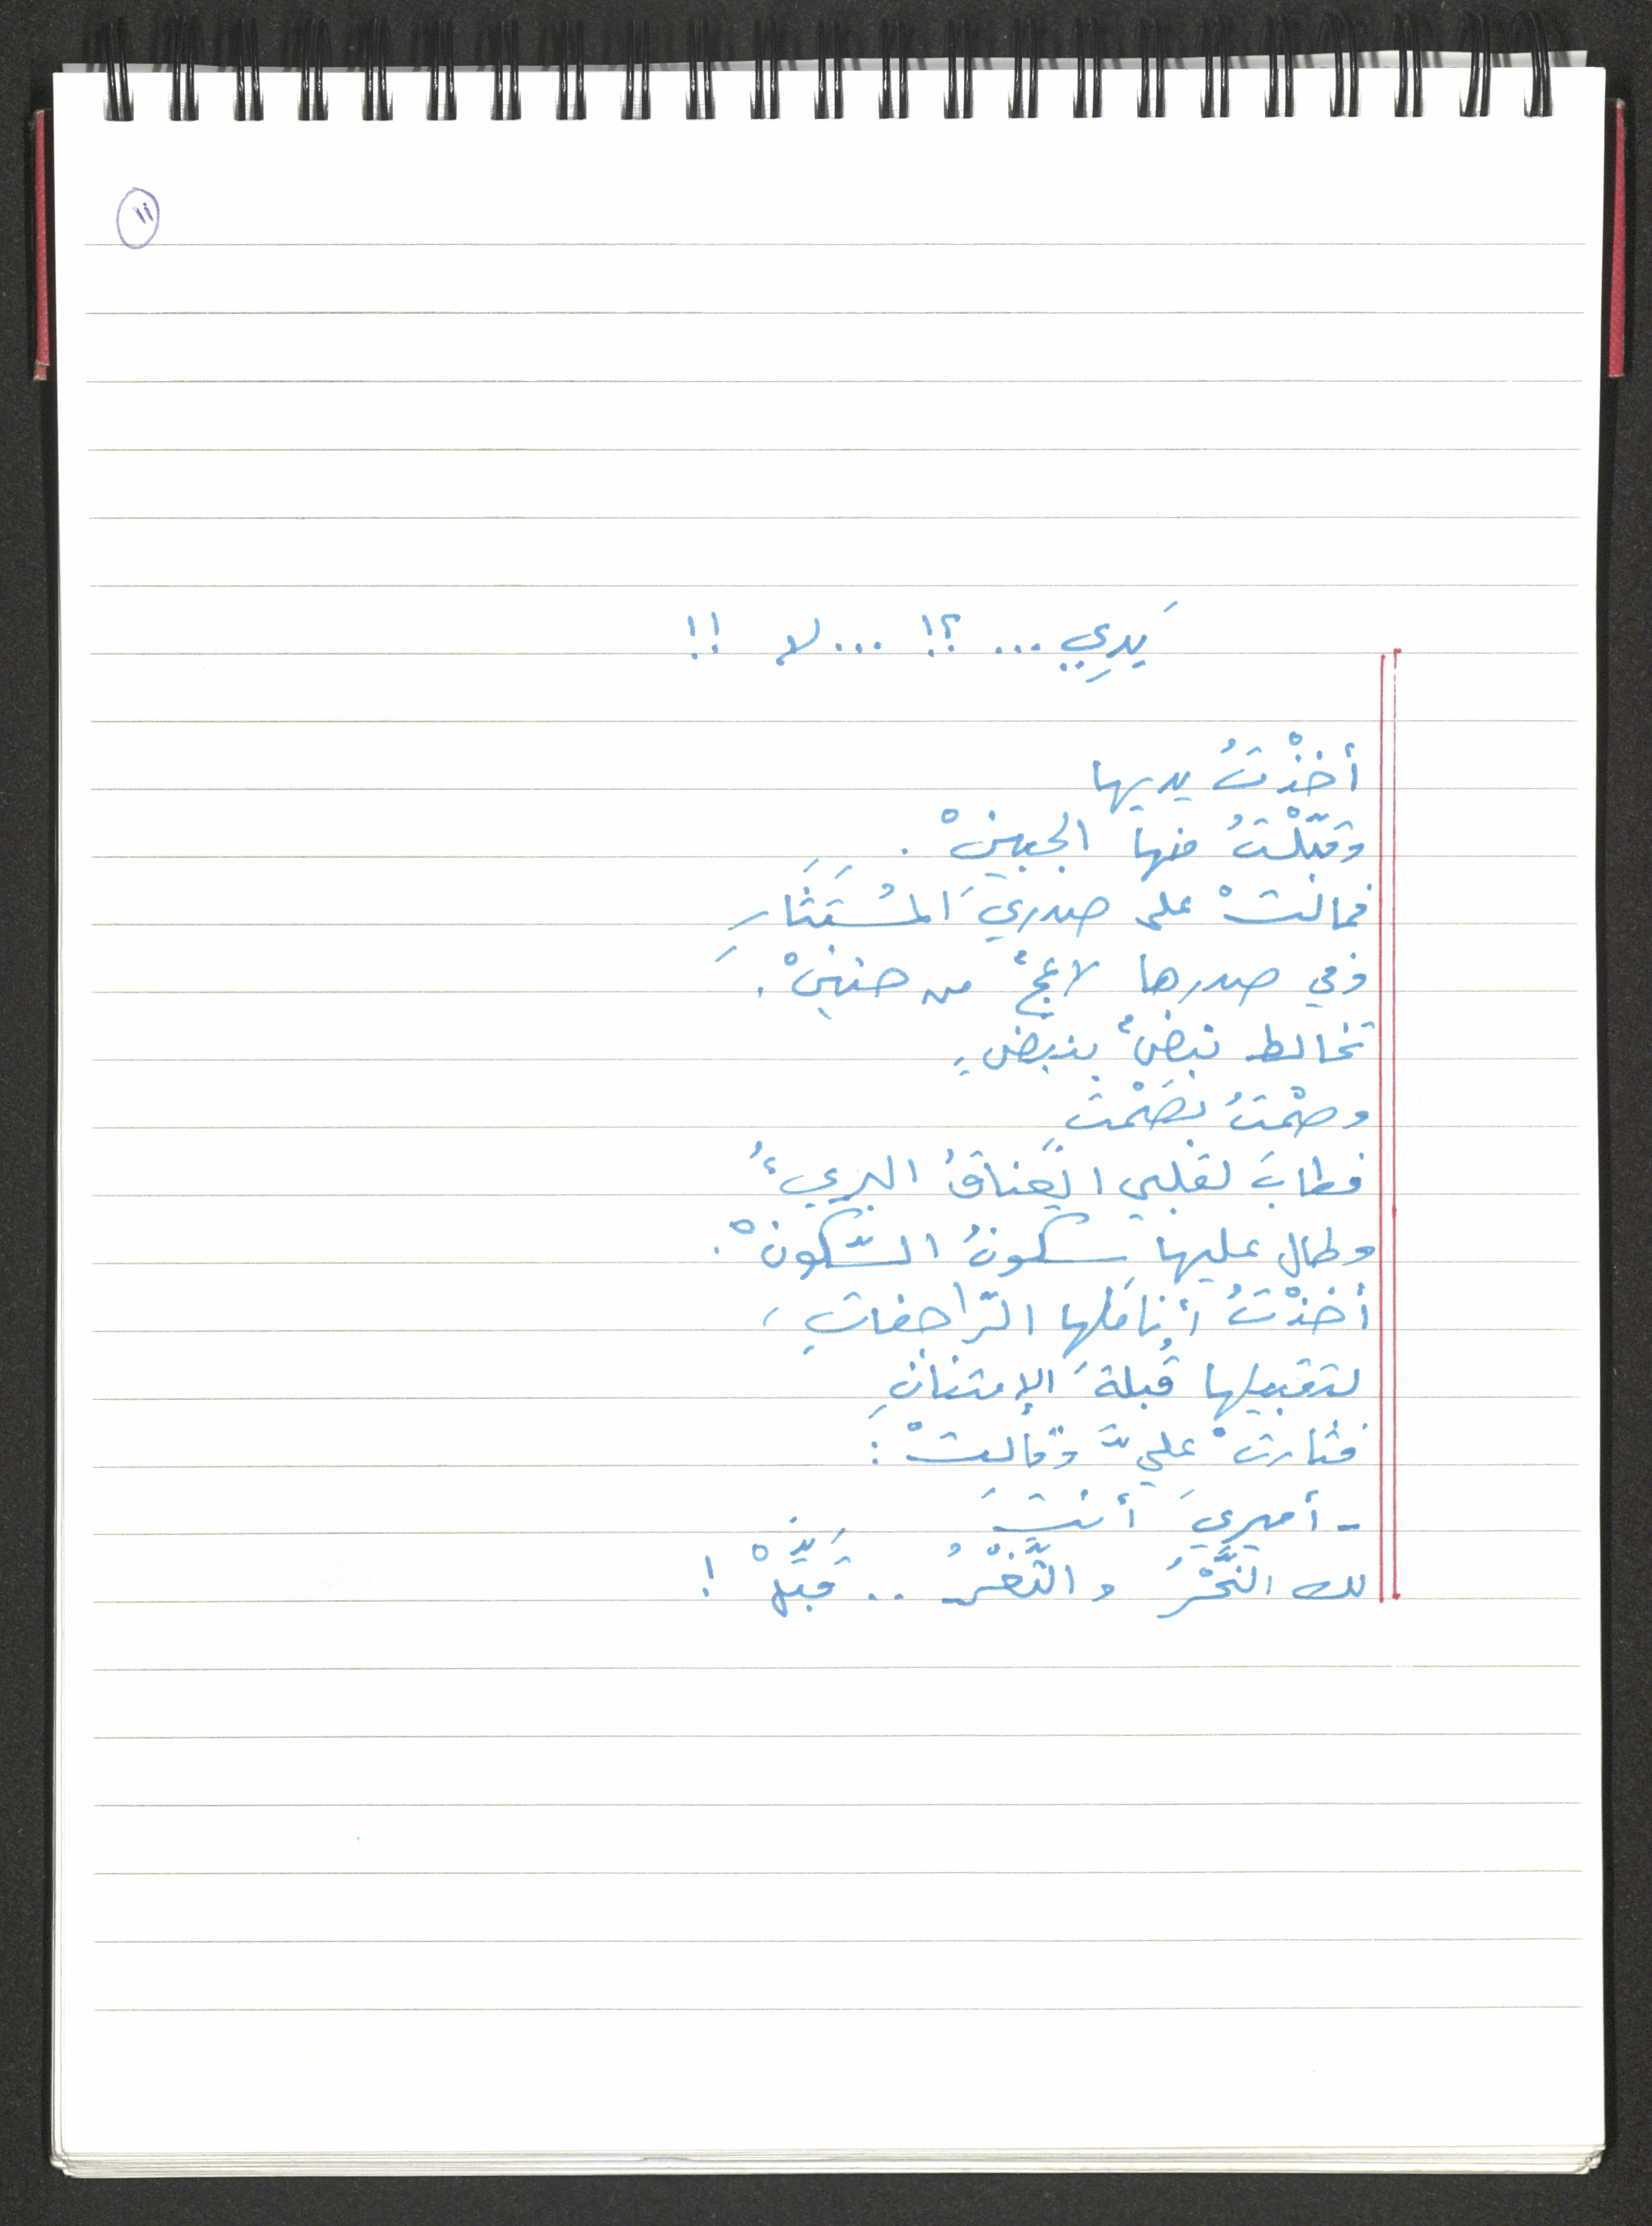 ١١
يَدِي ... ؟! ... لا !!
أخذْتُ يديها
وقبّلْتُ منها الجبينْ .
فمالتْ على صدريَ المُسْتَثَارِ
وفي صدرها لاعجٌ من حنينْ .
تخالط نبضٌ بنبضٍ
وصمْتُ بصَمْتٍ
فطابَ لقلبي العِناقُ البريءُ
وطال عليها سكونُ السّكونْ .
أخذْتُ أناملَها الرّاجفاتِ ،
لتقبيلها قُبلةَ الإمتنانِ
فثارتْ عليّ وقالتْ :
- أميريَ أنتَ
لك النَّحْرُ والثَّغْرُ .. قَبِّلْ !